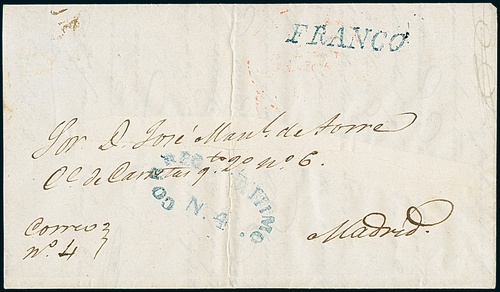 FRANCO
Sor. D. José Manl. de Torre
Ce. de Carretas qto. 2o. no. 6.
CORREO MARITIMO
N. 4.
Correo
no. 4
Madrid.